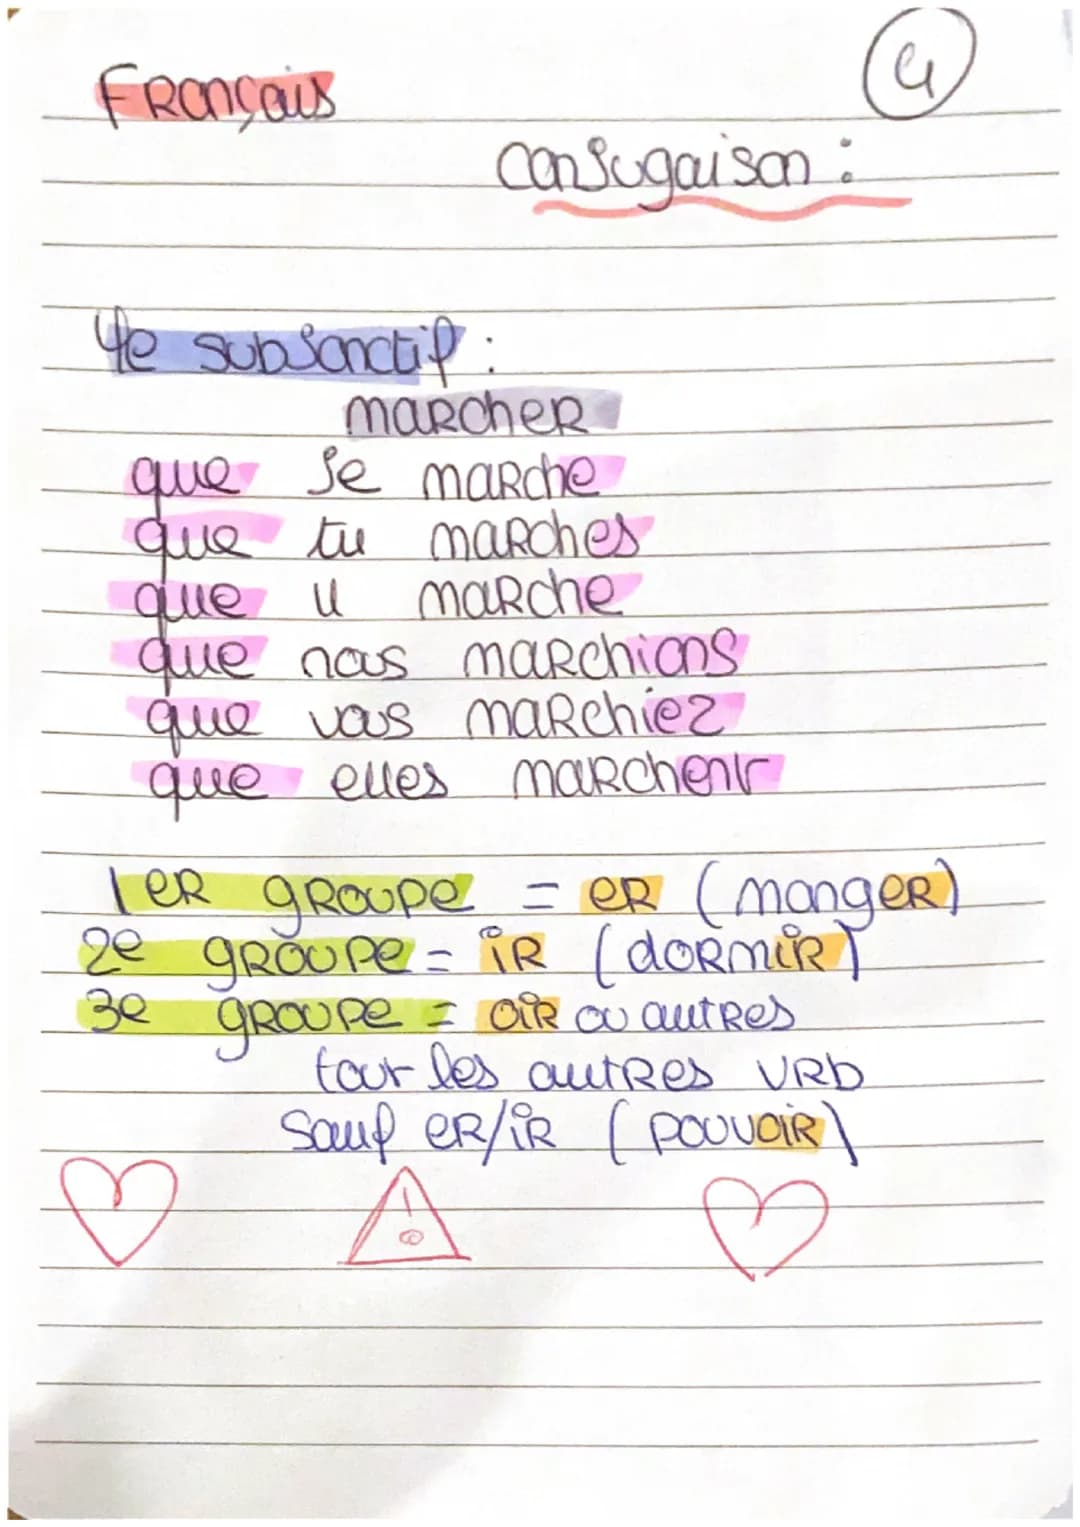 Français
4
conjugaison :
le subjonctif :
marcher
que je marche
que tu marches
que il marche
que nous marchions
que vous marchiez
que elles marchent
1er groupe = er (manger)
2e groupe = ir (dormir)
3e groupe = oir ou autres
tout les autres vrb
sauf er/ir (pouvoir)
!